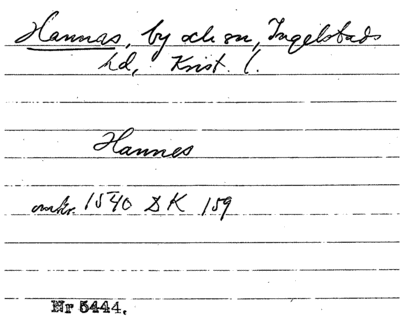 Hannas, by och sn, Ingelstads
hd, Krist. l.
Hannes
omkr. 1540 DK 159
Nr 5444.